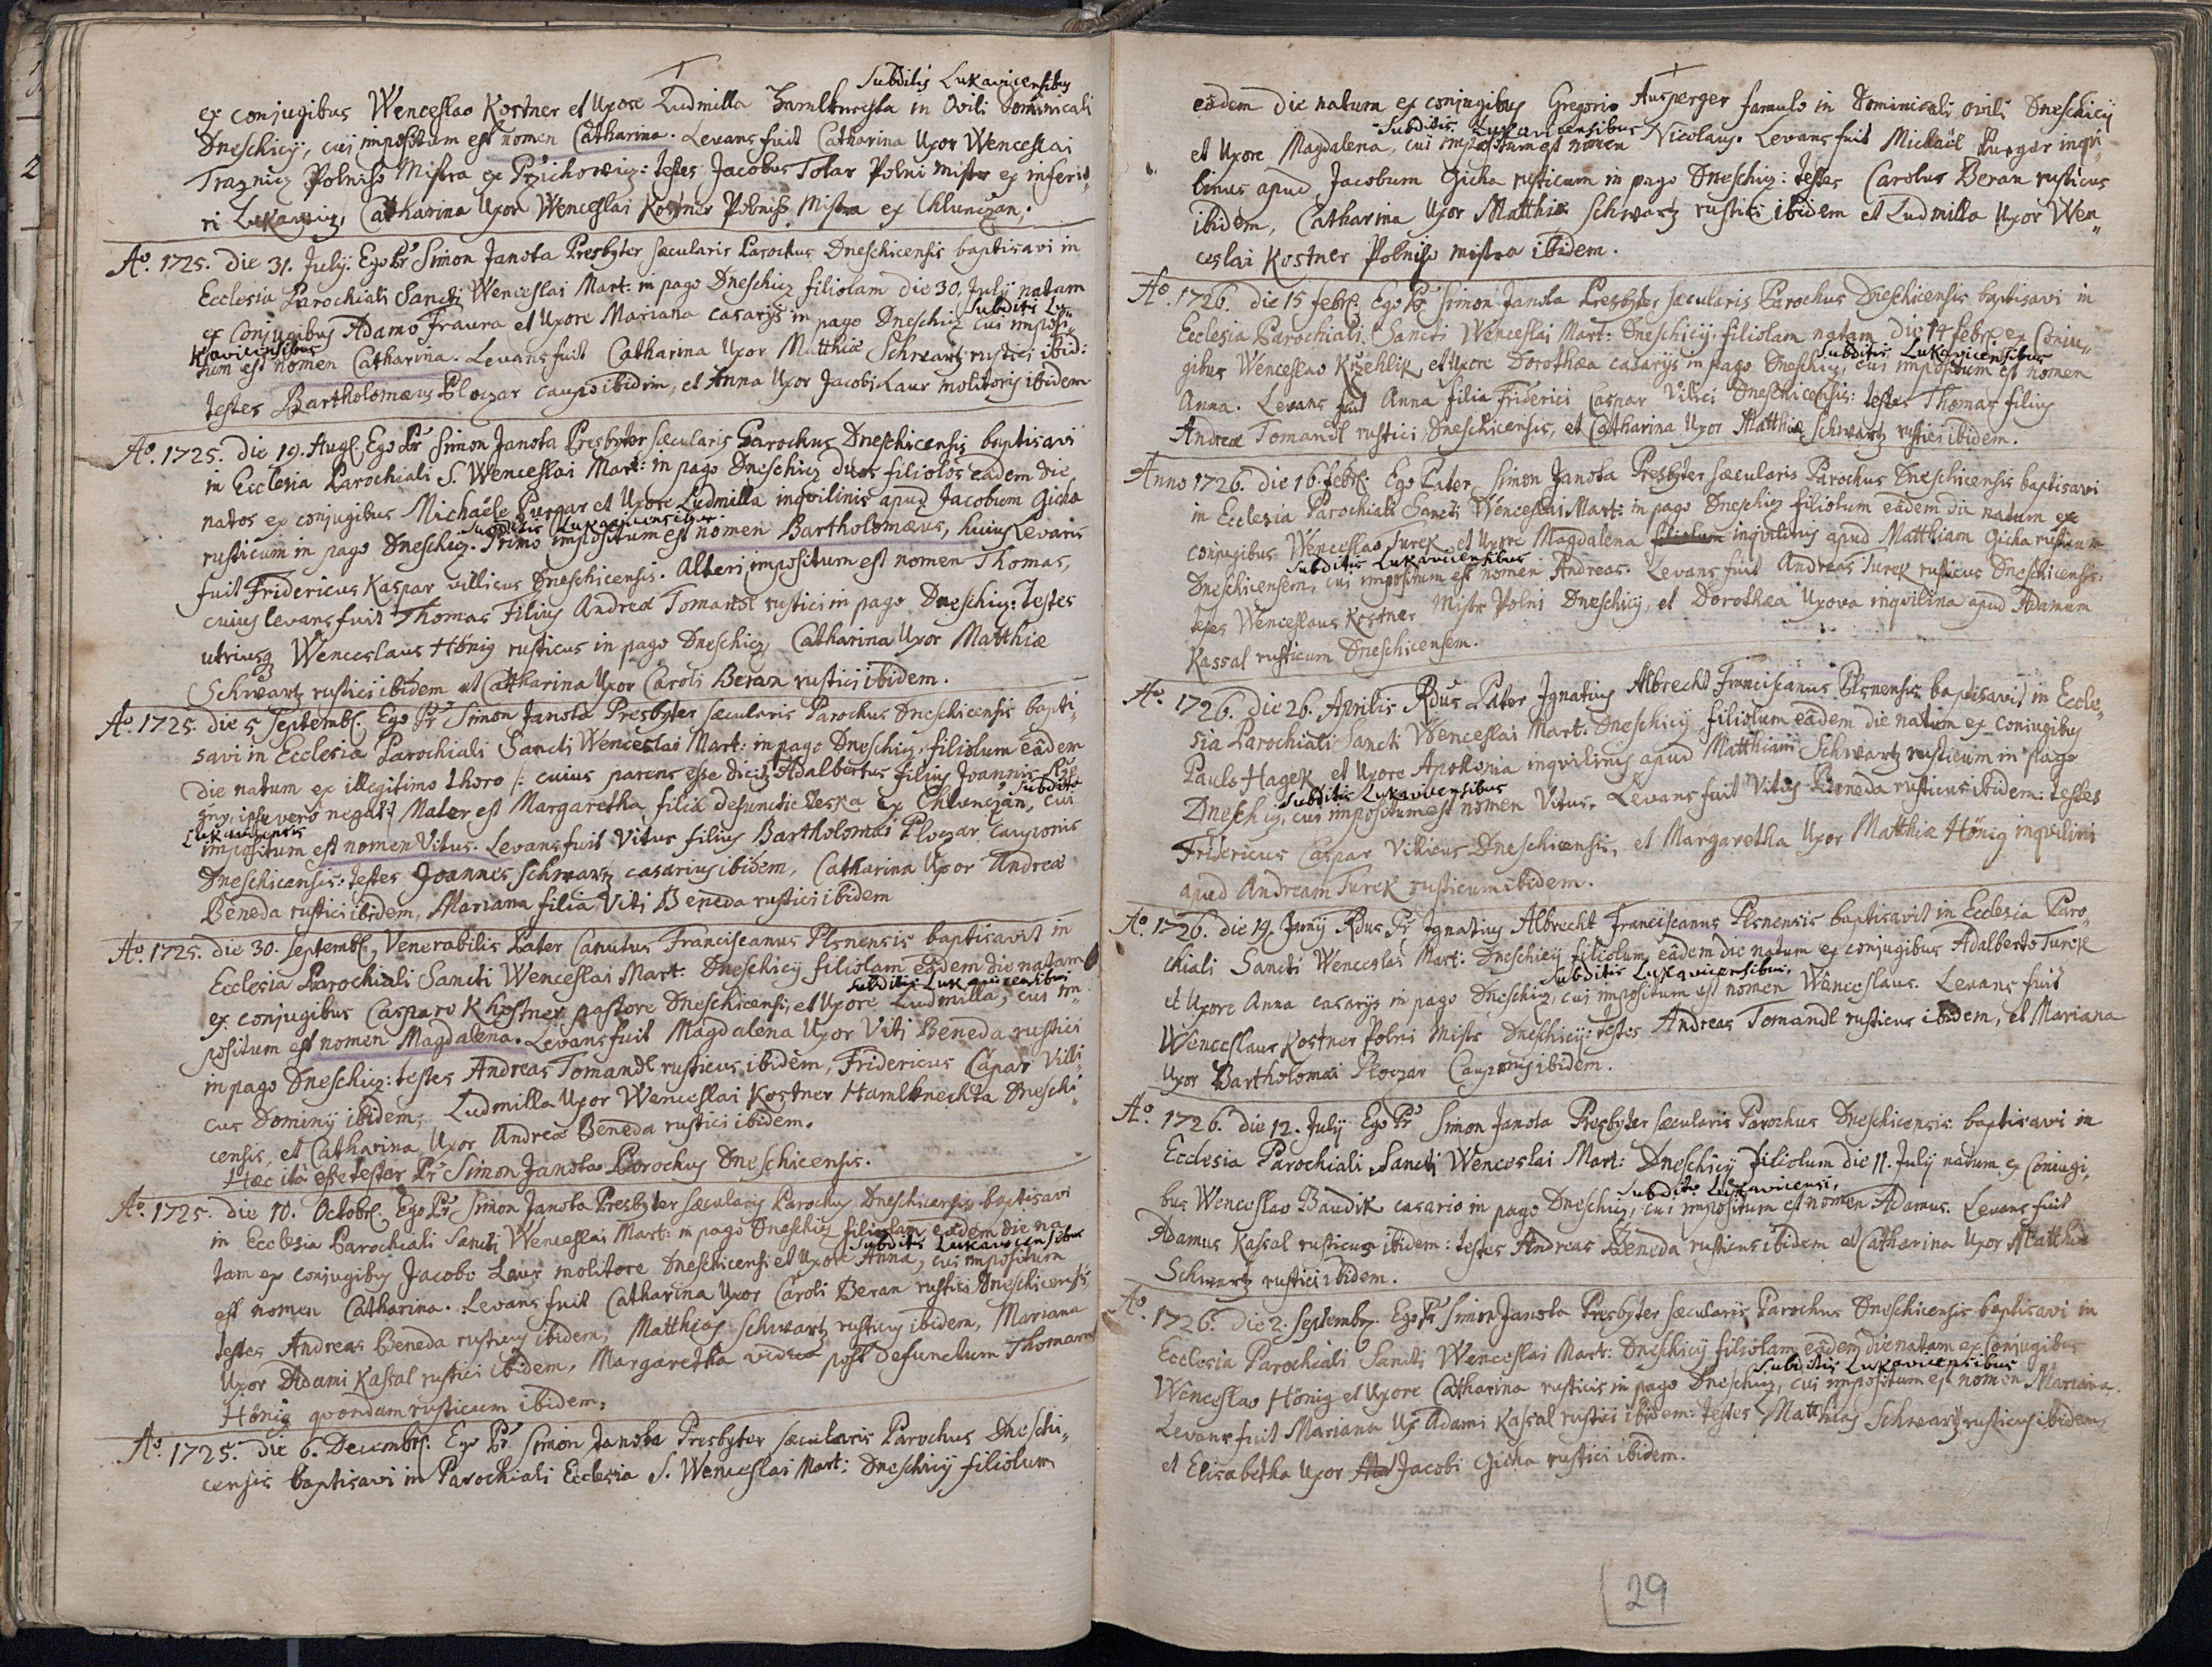 Subditis Lukavicensibus
ex conjugibus Wenceslao Kostner et Uxore Ludmilla Hamlknechta in Ovili Dominicali
Dneschicij, cui impositum est nomen Catharina. Levans fuit Catharina Uxor Wenceslai
Traznicz Polniho Mistra ex Przichowicz: testes Jacobus Tolar Polni mistr ex inferio„
ri Lukawicz, Catharina Uxor Wenceslai Kostner Polniho Mistra ex Chlunczan.
Aõ. 1725. die 31. July. Ego Pr Simon Janota Presbyter sæcularis Parochus Dneschicensis baptisavi in
Ecclesia Parochiali Sancti Wenceslai Mart: in pago Dneschicz filiolam die 30. July natam
Subditis Lu„
ex Conjugibus Adamo Fraura et Uxore Mariana casarijs in pago Dneschicz cui imposi„
kavicensibus
tum est nomen Catharina. Levans fuit Catharina Uxor Matthiæ Schwartz rustici ibid:
testes Bartholomæus Ploczar caupo ibidem, et Anna Uxor Jacobi Laur molitoris ibidem
Aõ. 1725. die 19. Aug. Ego Pr Simon Janota Presbyter sæcularis Parochus Dneschicensis baptisavi
in Ecclesia Parochiali S. Wenceslai Mart: in pago Dneschicz duos filiolos eadem die
natos ex conjugibus Michaële Purgar et Uxore Ludmilla inqvilinis apud Jacobum Gicha
Subditis Lukavicensibus
rusticum in pago Dneschicz. Primo impositum est nomen Bartholomæus, huius Levans
fuit Fridericus Kaspar villicus Dneschicensis. Alteri impositum est nomen Thomas,
cuius levans fuit Thomas Filius Andreæ Tomandl rustici in pago Dneschicz: testes
utriusq Wenceslaus Hönig rusticus in pago Dneschicz, Catharina Uxor Matthiæ
Schwartz rustici ibidem et Catharina Uxor Caroli Beran rustici ibidem.
Aõ. 1725. die 5 Septemb. Ego Pr Simon Janota Presbyter sæcularis Parochus Dneschicensis bapti„
savi in Ecclesia Parochiali Sancti Wenceslai Mart: in pago Dneschicz filiolum eâdem
die natum ex illegitimo thoro /: cuius parens esse dicitz Adalbertus filius Joannis
ipse vero negat :/ Mater est Margaretha filia defuncti Leska ex Chlunczan, cui
Subdito
Lukavicensis
impositum est nomen Vitus. Levans fuit Vitus filius Bartholomæi Ploczar cauponis
Dneschicensis: testes Joannes Schwartz casarius ibidem, Catharina Uxor Andreæ
Beneda rustici ibidem, Mariana filia Viti Beneda rustici ibidem
Aõ. 1725. die 30. Septemb. Venerabilis Pater Canutus Franciscanus Plsnensis baptisavit in
Ecclesia Parochiali Sancti Wenceslai Mart: Dneschicij filiolam eâdem die natam
Subditis Lukavicensibus
ex conjugibus Casparo Khostner pastore Dneschicensi, et Uxore Ludmilla, cui im„
positum est nomen Magdalena. Levans fuit Magdalena Uxor Viti Beneda rustici
in pago Dneschicz: testes Andreas Tomandl rusticus ibidem, Fridericus Caspar Villi„
cus Dominij ibidem, Ludmilla Uxor Wenceslai Kostner Hamlknechta Dneschi„
censis, et Catharina Uxor Andreæ Beneda rustici ibidem.
Hæc ità esse testor Pr Simon Janota Parochus Dneschicensis.
Aõ. 1725. die 10. Octobr. Ego Pr Simon Janota Presbyter sæcularis Parochus Dneschicensis baptisavi
in Ecclesia Parochiali Sancti Wenceslai Mart: in pago Dneschicz filiolam eâdem die na„
Subditis Lukavicensibus
tam ex conjugibus Jacobo Laur molitore Dneschicensi et Uxore Anna, cui impositum
est nomen Catharina. Levans fuit Catharina Uxor Caroli Beran rustici Dneschicensis,
testes Andreas Beneda rusticus ibidem, Matthias Schwartz rusticus ibidem, Mariana
Uxor Adami Kassal rustici ibidem, Margaretha vidua post defunctum Thomam
Hönig qvondam rusticum ibidem.
Aõ. 1725. die 6. Decembr. Ego Pr Simon Janota Presbyter sæcularis Parochus Dneschi„
censis baptisavi in Parochiali Ecclesia S. Wenceslai Mart: Dneschicij filiolum
eâdem die natum ex conjugibus Gregorio Ausperger famulo in Dominicali ovili Dneschicij
Subditis Lukavicensibus
et Uxore Magdalena, cui impositum est nomen Nicolaus. Levans fuit Michaël Purgar inqvi„
linus apud Jacobum Gicha rusticum in pago Dneschicz: testes Carolus Beran rusticus
ibidem, Catharina Uxor Matthiæ Schwartz rustici ibidem et Ludmilla Uxor Wen„
ceslai Kostner Polniho mistra ibidem.
Aõ. 1726. die 15 febr. Ego Pr Simon Janota Presbyter sæcularis Parochus Dneschicensis baptisavi in
Ecclesia Parochiali Sancti Wenceslai Mart: Dneschicij filiolam natam die 14 febr. ex Coniu„
Subditis Lukavicensibus
gibus Wenceslao Krzehlik et Uxore Dorothæa casarijs in pago Dneschicz, cui impositum est nomen
Anna. Levans fuit Anna filia Friderici Caspar Villici Dneschicensis: testes Thomas filius
Andreæ Tomandl rustici Dneschicensis, et Catharina Uxor Matthiæ Schwartz rustici ibidem.
Anno 1726. die 16. febr. Ego Pater Simon Janota Presbyter sæcularis Parochus Dneschicensis baptisavi
in Ecclesia Parochiali Sancti Wenceslai Mart: in pago Dneschicz filiolum eâdem die natum ex
conjugibus Wenceslao Turek et Uxore Magdalena filiolum inqvilinis apud Matthiam Gicha rusticum
Subditis Lukavicensibus
Dneschicensem, cui impositum est nomen Andreas. Levans fuit Andreas Turek rusticus Dneschicensis:
testes Wenceslaus Kostner Mistr Polni Dneschicij, et Dorothæa Uxova inqvilina apud Adamum
Kassal rusticum Dneschicensem.
Aõ. 1726. die 26. Aprilis Rdus Pater Ignatius Albrecht Franciscanus Plsnensis baptisavit in Eccle„
sia Parochiali Sancti Wenceslai Mart. Dneschicij filiolum eâdem die natum ex coniugibus
Paulo Hagek et Uxore Apollonia inqvilinis apud Matthiam Schwartz rusticum in pago
Subditis Lukavicensibus
Dneschicz, cui impositum est nomen Vitus. Levans fuit Vitus Beneda rusticus ibidem: testes
Fridericus Caspar Villicus Dneschicensis, et Margaretha Uxor Matthiæ Hönig inqvilini
apud Andream Turek rusticum ibidem.
Aõ. 1726. die 19. Junij Rdus Pr Ignatius Albrecht Franciscanus Plsnensis baptisavit in Ecclesia Paro„
chiali Sancti Wenceslai Mart: Dneschicij filiolum eâdem die natum ex conjugibus Adalberto Turek
Subditis Lukavicensibus.
et Uxore Anna casarijs in pago Dneschicz, cui impositum est nomen Wenceslaus. Levans fuit
Wenceslaus Kostner Polni Mistr Dneschicij: testes Andreas Tomandl rusticus ibidem, et Mariana
Uxor Bartholomæi Ploczar Cauponis ibidem.
Aõ. 1726. die 12. July Ego Pr Simon Janota Presbyter sæcularis Parochus Dneschicensis baptisavi in
Ecclesia Parochiali Sancti Wenceslai Mart: Dneschicij filiolum die 11. July natum ex Coniugi„
Subdito Lukavicensi,
bus Wenceslao Baudik casario in pago Dneschicz, cui impositum est nomen Adamus. Levans fuit
Adamus Kassal rusticus ibidem: testes Andreas Beneda rusticus ibidem et Catharina Uxor Matthiæ
Schwartz rustici ibidem.
Aõ. 1726. die 2. Septembr. Ego Pr Simon Janota Presbyter sæcularis Parochus Dneschicensis baptisavi in
Ecclesia Parochiali Sancti Wenceslai Mart: Dneschicij filiolam eâdem die natam ex Conjugibus
Subditis Lukavicensibus
Wenceslao Hönig et Uxore Catharina rusticis in pago Dneschicz, cui impositum est nomen Mariana.
Levans fuit Mariana Ux Adami Kassal rustici ibidem: testes Matthias Schwartz rusticus ibidem
et Elisabetha Uxor Jacobi Gicha rustici ibidem.
29